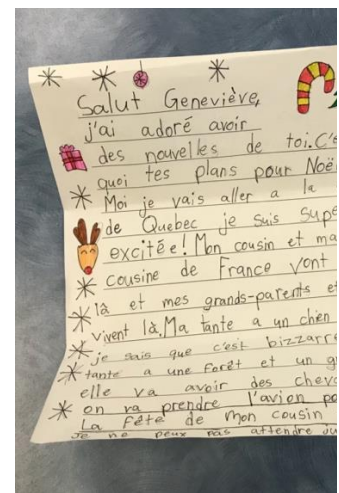 Salut Geneviève,
j'ai adoré avoir
des nouvelles de toi. C'es
quoi tes plans pour Noël
Moi je vais aller a la
de Quebec je suis supe
excitée! Mon cousin et ma
cousine de France vont
là et mes grands-parents et
vivent là. Ma tante a un chien
je sais que c'est bizzarre
tante a une forêt et un g
elle va avoir des cheva
on va prendre l'avion po
La fête de mon cousin
Je ne peux pas attendre ju